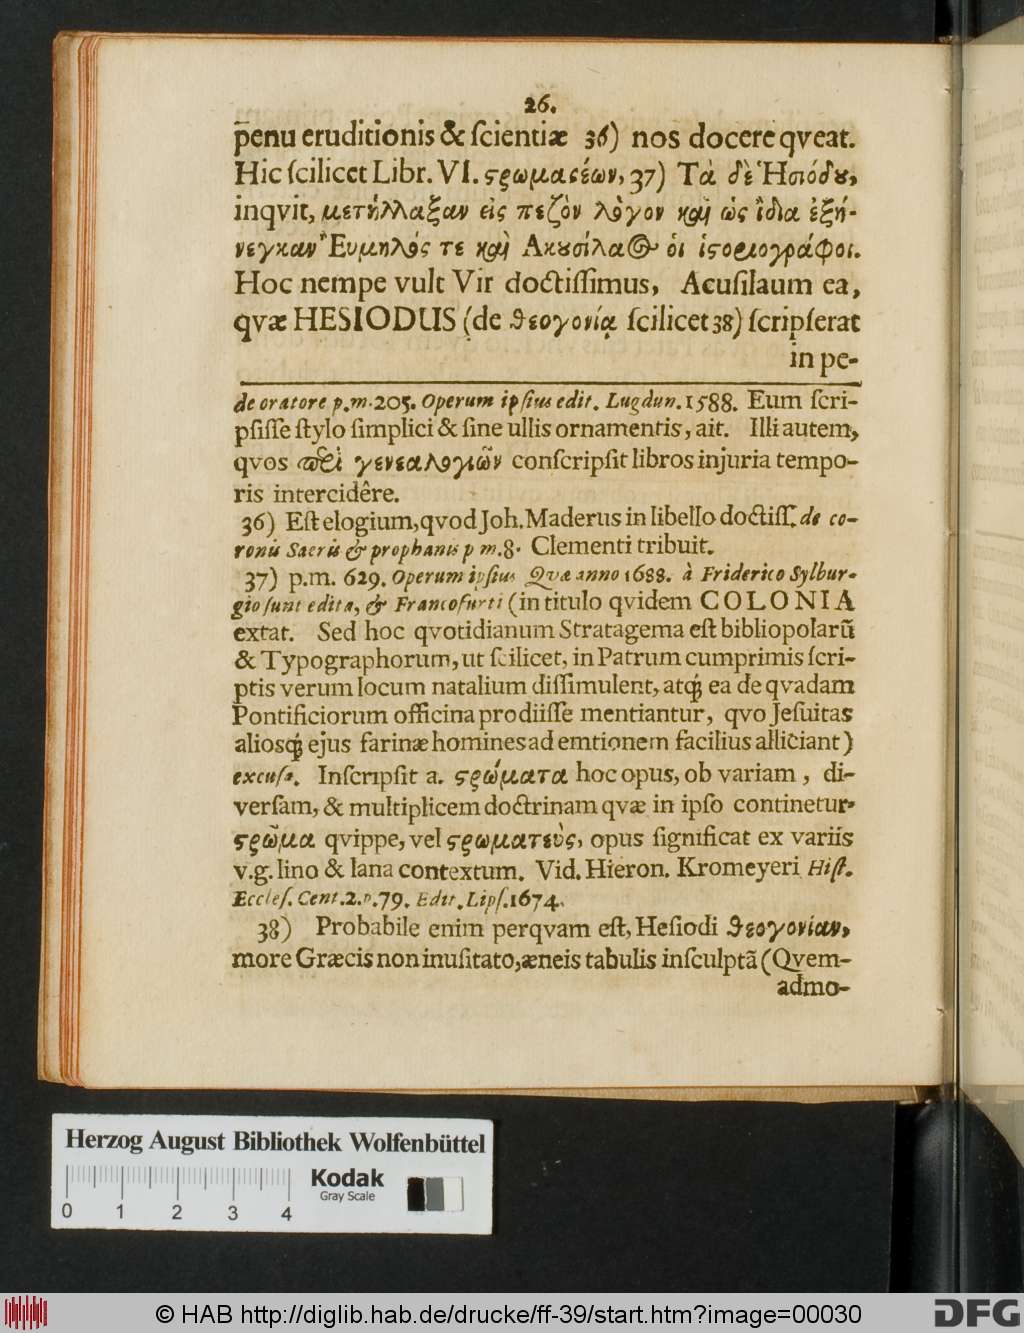 26.
penu eruditionis & ſcientiæ 36) nos docere qveat.
Hic ſcilicet Libr. VI. ϛρωμαϛέων, 37) Τὰ δὲ Ἡσιόδȣ,
inqvit, μετήλλαξαν εἰς πεζὸν λόγον καὶ ὡς ἴδια ἐξή-
νεγκαν Ἐυμηλός τε καὶ Ακȣσίλαος οἱ ἱϛοριογράφοι.
Hoc nempe vult Vir doctiſſimus, Acuſilaum ea,
qvæ HESIODUS (de θεογονίᾳ ſcilicet 38) ſcripſerat
in pe-
de oratore p.m. 205. Operum ipſius edit. Lugdun. 1588. Eum ſcri-
pſiſſe ſtylo ſimplici & ſine ullis ornamentis, ait. Illi autem,
qvos περὶ γενεαλογιῶν conſcripſit libros injuria tempo-
ris intercidêre.
36) Eſt elogium, qvod Joh. Maderus in libello doctiſſ. de co-
ronis Sacris & prophanis p m. 8. Clementi tribuit.
37) p.m. 629. Operum ipſius Qvæ anno 1688. à Friderico Sylbur-
gio ſunt edita, & Francofurti (in titulo qvidem COLONIA
extat. Sed hoc qvotidianum Stratagema eſt bibliopolarũ
& Typographorum, ut ſcilicet, in Patrum cumprimis ſcri-
ptis verum locum natalium diſſimulent, atq́; ea de qvadam
Pontificiorum officina prodiiſſe mentiantur, qvo Jeſuitas
aliosq́; ejus farinæ homines ad emtionem facilius alliciant)
excuſa. Inſcripſit a. ϛρώματα hoc opus, ob variam, di-
verſam, & multiplicem doctrinam qvæ in ipſo continetur.
ϛρῶμα qvippe, vel ϛρωματεὺς, opus ſignificat ex variis
v.g. lino & lana contextum. Vid. Hieron. Kromeyeri Hiſt.
Eccleſ. Cent. 2. p. 79. Edit. Lipſ. 1674.
38) Probabile enim perqvam eſt, Heſiodi θεογονίαν,
more Græcis non inuſitato, æneis tabulis inſculptã (Qvem-
admo-
Herzog August Bibliothek Wolfenbüttel
Kodak
Gray Scale
0 1 2 3 4
© HAB http://diglib.hab.de/drucke/ff-39/start.htm?image=00030
DFG